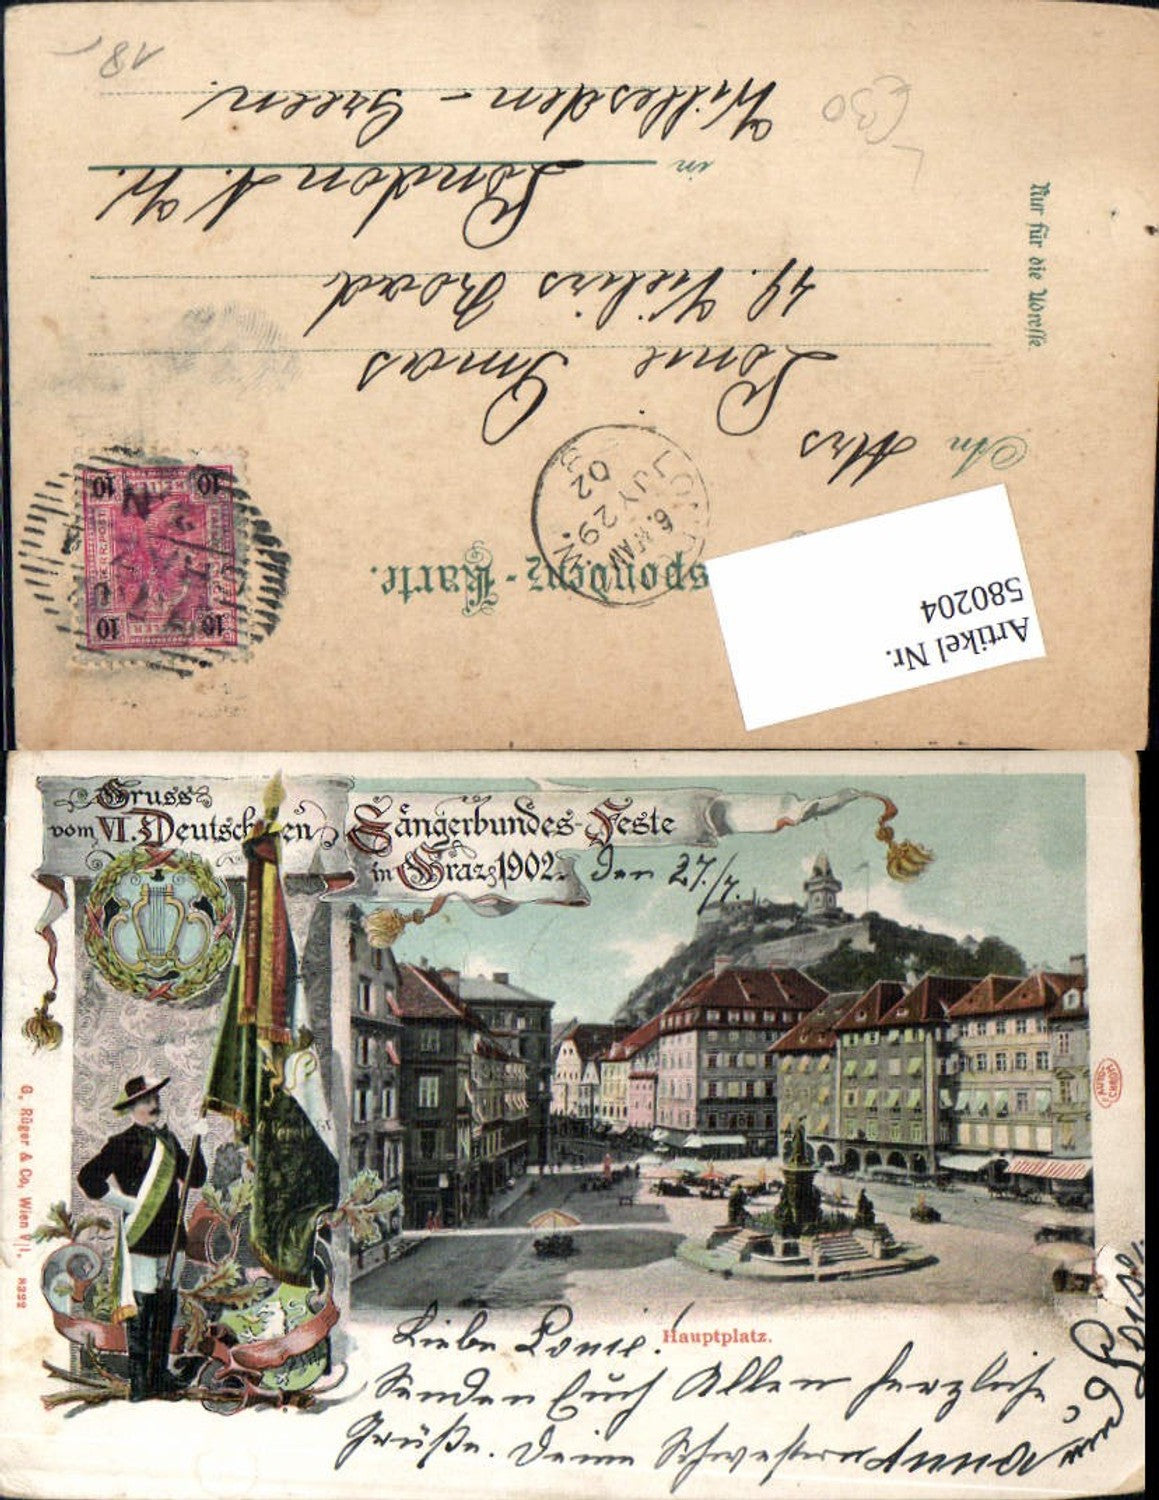 Korrespondenz-Karte.
An Mrs
Lonie Smas
49. Villiers Road
in London N. W.
Willesden - Green.
Nur für die Adresse.
LONDON N.W.
JY 29
02
10 10
10 10
18
£30
Artikel Nr.
580204
Gruss
vom VI. Deutschen Sängerbundes-Feste
in Graz 1902. den 27./7.
G. Rüger & Co, Wien V/1, 8292
AUTOCHROM
Hauptplatz.
Liebe Lonie!
Senden Euch Allen herzliche
Grüße. Deine Schwestern Anna
und Louise.